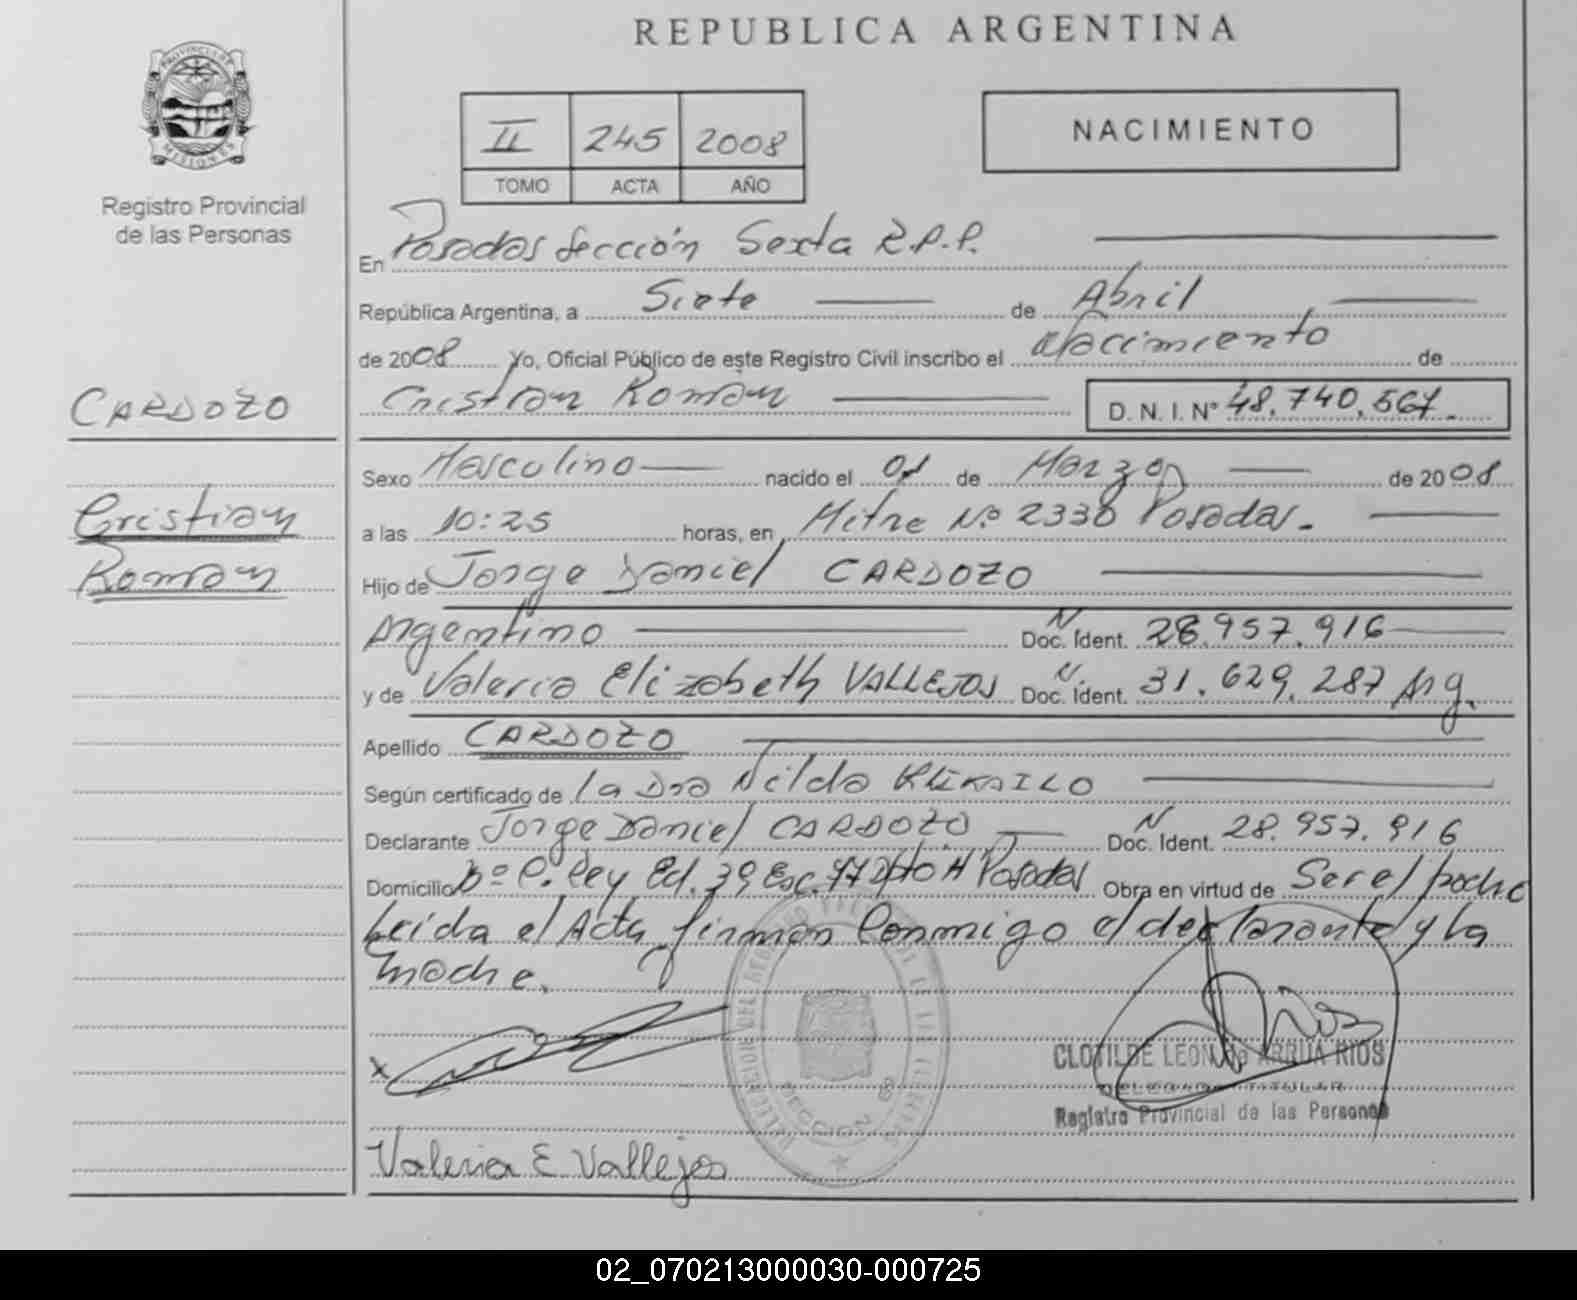 REPUBLICA ARGENTINA
PROVINCIA DE MISIONES
Registro Provincial
de las Personas
II 245 2008
TOMO ACTA AÑO
NACIMIENTO
En Posadas Sección Sexta R.P.P.
República Argentina, a Siete de Abril
de 2008 Yo, Oficial Público de este Registro Civil inscribo el Nacimiento de
Cristian Román D. N. I. Nº 48.740.567.
CARDOZO
Cristian
Román
Sexo Masculino nacido el 01 de Marzo de 2008
a las 10:25 horas, en Mitre Nº 2330 Posadas.
Hijo de Jorge Daniel CARDOZO
Argentino Doc. Ident. N 28.957.916
y de Valeria Elizabeth VALLEJOS Doc. Ident. N. 31.629.287 Arg.
Apellido CARDOZO
Según certificado de la Dra Nilda
Declarante Jorge Daniel CARDOZO Doc. Ident. N 28.957.916
Domicilio Bº P. Rey Ed. 39 Esc. 77 Dpto H Posadas Obra en virtud de Ser el padre
Leída el Acta firman Conmigo el declarante y la
madre.
x
CLOTILDE LEON de ARRUA RIOS
DELEGADA TITULAR
Registro Provincial de las Personas
SECCION 6º
Valeria E Vallejos
02_070213000030-000725